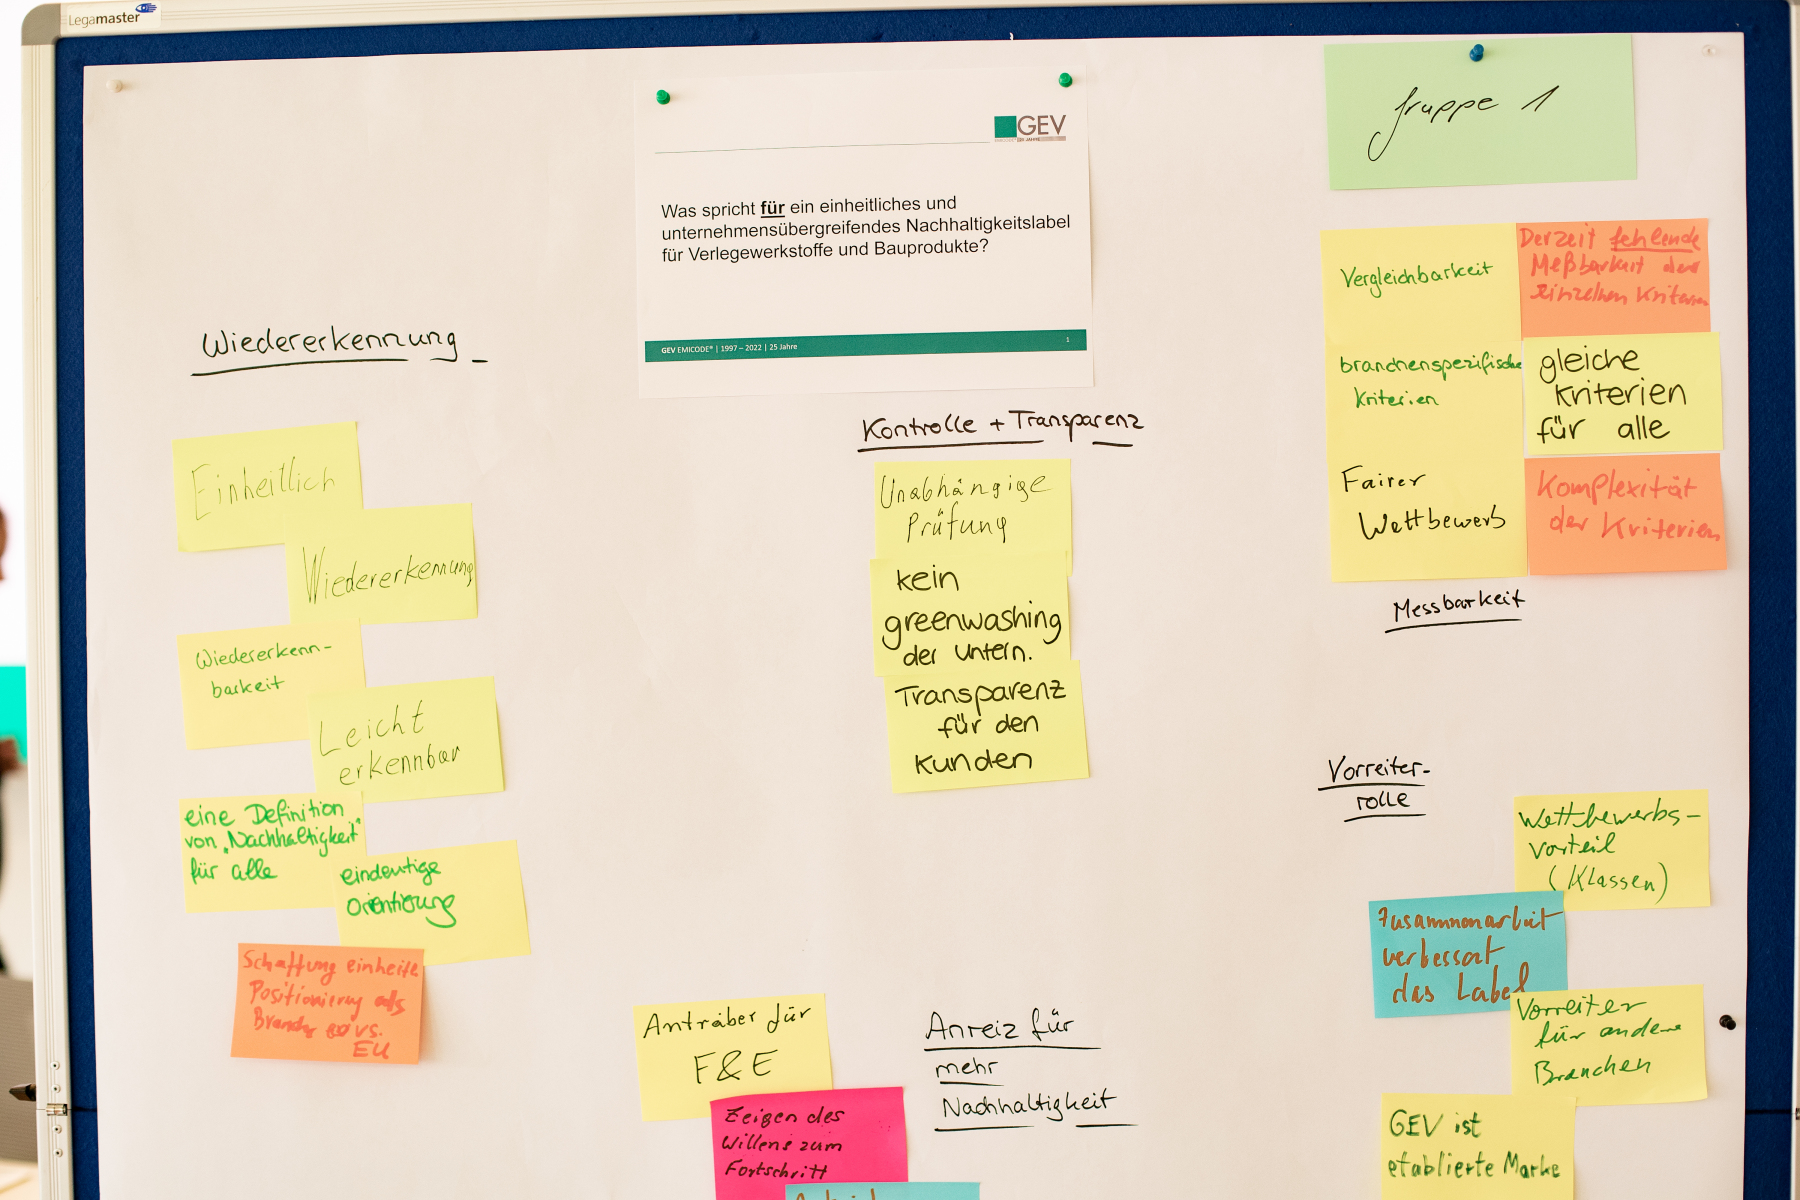 Legamaster
GEV
Was spricht für ein einheitliches und
unternehmensübergreifendes Nachhaltigkeitslabel
für Verlegewerkstoffe und Bauprodukte?
GEV EMICODE® | 1997 – 2022 | 25 Jahre
1
Gruppe 1
Wiedererkennung
Einheitlich
Wiedererkennung
Wiedererkenn-
barkeit
Leicht
erkennbar
eine Definition
von „Nachhaltigkeit"
für alle
eindeutige
Orientierung
Schaffung einheitl.
Positionierung als
Branche vs.
EU
Kontrolle + Transparenz
Unabhängige
Prüfung
kein
greenwashing
der Untern.
Transparenz
für den
Kunden
Antreiber für
F&E
Zeigen des
Willens zum
Fortschritt
Anreiz für
mehr
Nachhaltigkeit
Vergleichbarkeit
Derzeit fehlende
Meßbarkeit der
einzelnen Kriterien
branchenspezifische
Kriterien
gleiche
Kriterien
für alle
Fairer
Wettbewerb
Komplexität
der Kriterien
Messbarkeit
Vorreiter-
rolle
Wettbewerbs-
vorteil
(Klassen)
Zusammenarbeit
verbessert
das Label
Vorreiter
für andere
Branchen
GEV ist
etablierte Marke